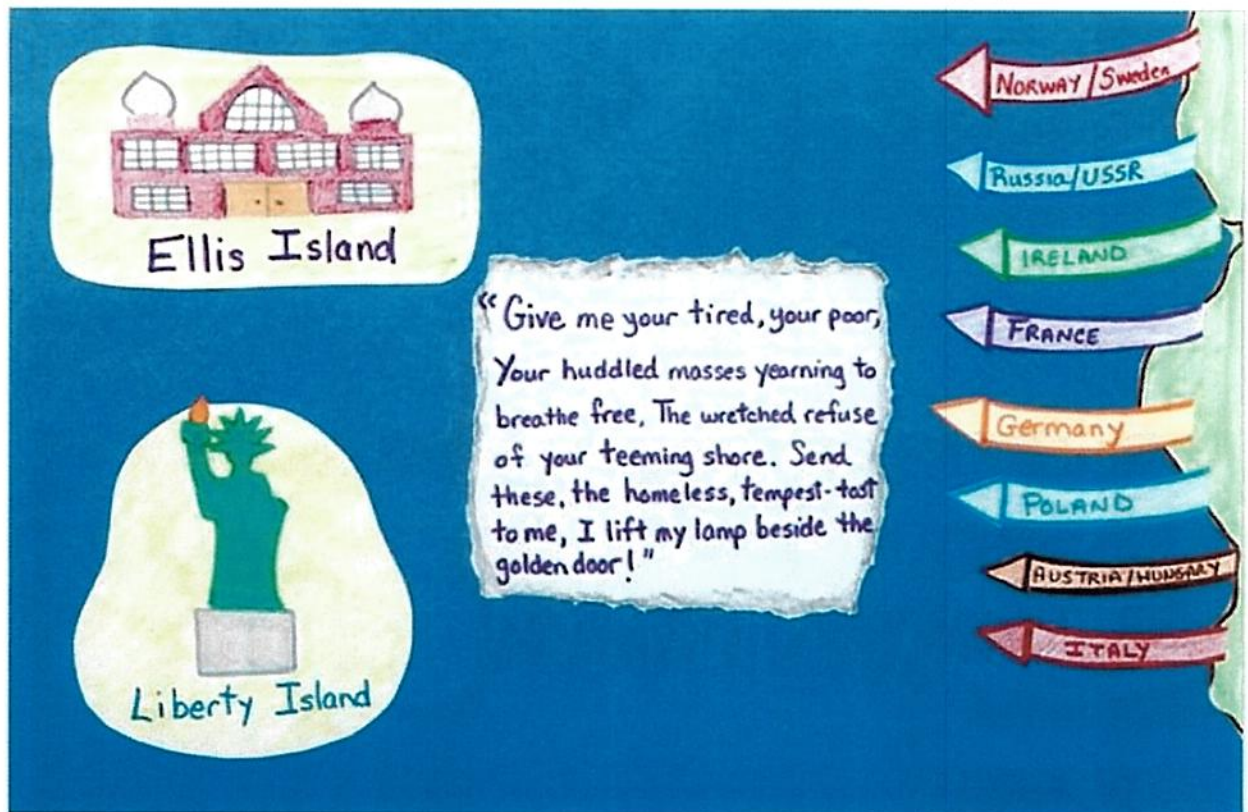 Ellis Island
Liberty Island
"Give me your tired, your poor,
Your huddled masses yearning to
breathe free, The wretched refuse
of your teeming shore. Send
these, the homeless, tempest-tost
to me, I lift my lamp beside the
golden door!"
NORWAY/Sweden
Russia/USSR
IRELAND
FRANCE
Germany
POLAND
AUSTRIA/HUNGARY
ITALY